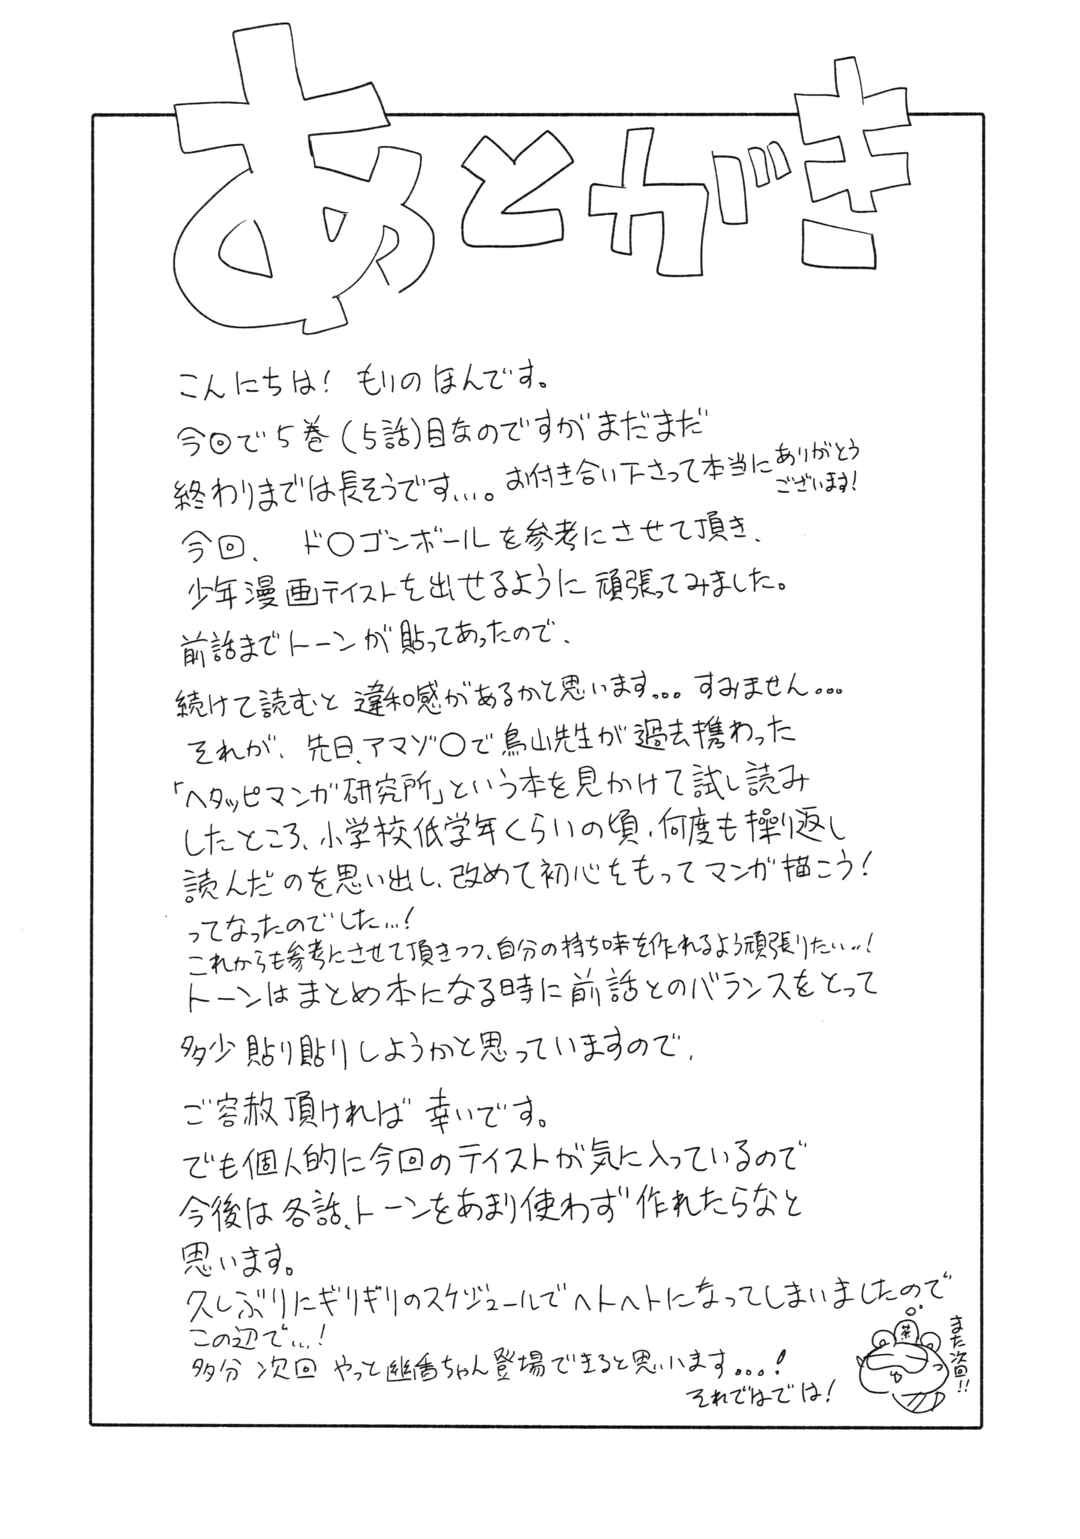 あとがき
こんにちは！もりのほんです。
今回で5巻（5話）目なのですがまだまだ
終わりまでは長そうです…。お付き合い下さって本当にありがとう
ございます！
今回、ド〇ゴンボールを参考にさせて頂き、
少年漫画テイストを出せるように頑張ってみました。
前話までトーンが貼ってあったので、
続けて読むと違和感があるかと思います... すみません...
それが、先日、アマゾ〇で鳥山先生が過去携わった
「ヘタッピマンガ研究所」という本を見かけて試し読み
したところ、小学校低学年くらいの頃、何度も繰り返し
読んだのを思い出し、改めて初心をもってマンガ描こう！
ってなったのでした…！
これからも参考にさせて頂きつつ、自分の持ち味を作れるよう頑張りたい…！
トーンはまとめ本になる時に前話とのバランスをとって
多少貼り貼りしようかと思っていますので、
ご容赦頂ければ幸いです。
でも個人的に今回のテイストが気に入っているので
今後は各話、トーンをあまり使わず作れたらなと
思います。
久しぶりにギリギリのスケジュールでヘトヘトになってしまいましたので
この辺で…！
多分次回やっと幽香ちゃん登場できると思います...！
それではでは！
茶
また次回!!